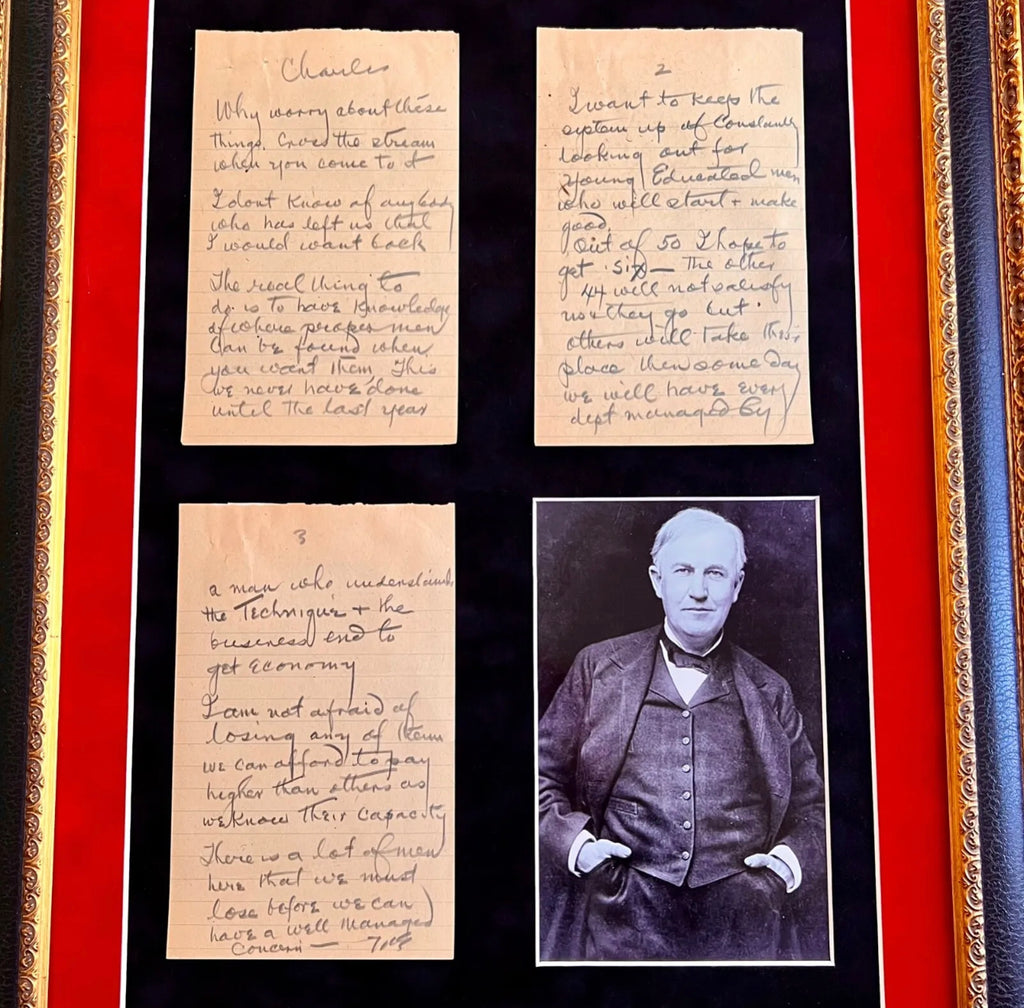 Charles
Why worry about these
things, Cross the stream
when you come to it
I dont Know of anybody
who has left us that
I would want back
The real thing to
do is to have Knowledge
of where proper men
Can be found when
you want them, This
we never have done
until the last year
2
I want to keep the
system up of Constantly
looking out for
young Educated men
who will start + make
good.
Out of 50 I hope to
get six — the other
44 will not satisfy
they go but
others will take their
place then some day
we will have every
dept managed by
3
a man who understands
the Technique + the
business end to
get economy
I am not afraid of
losing any of them
we can afford to pay
higher than others as
we Know Their Capacity
There is a lot of men
here that we must
lose before we can
have a well managed
Concern —